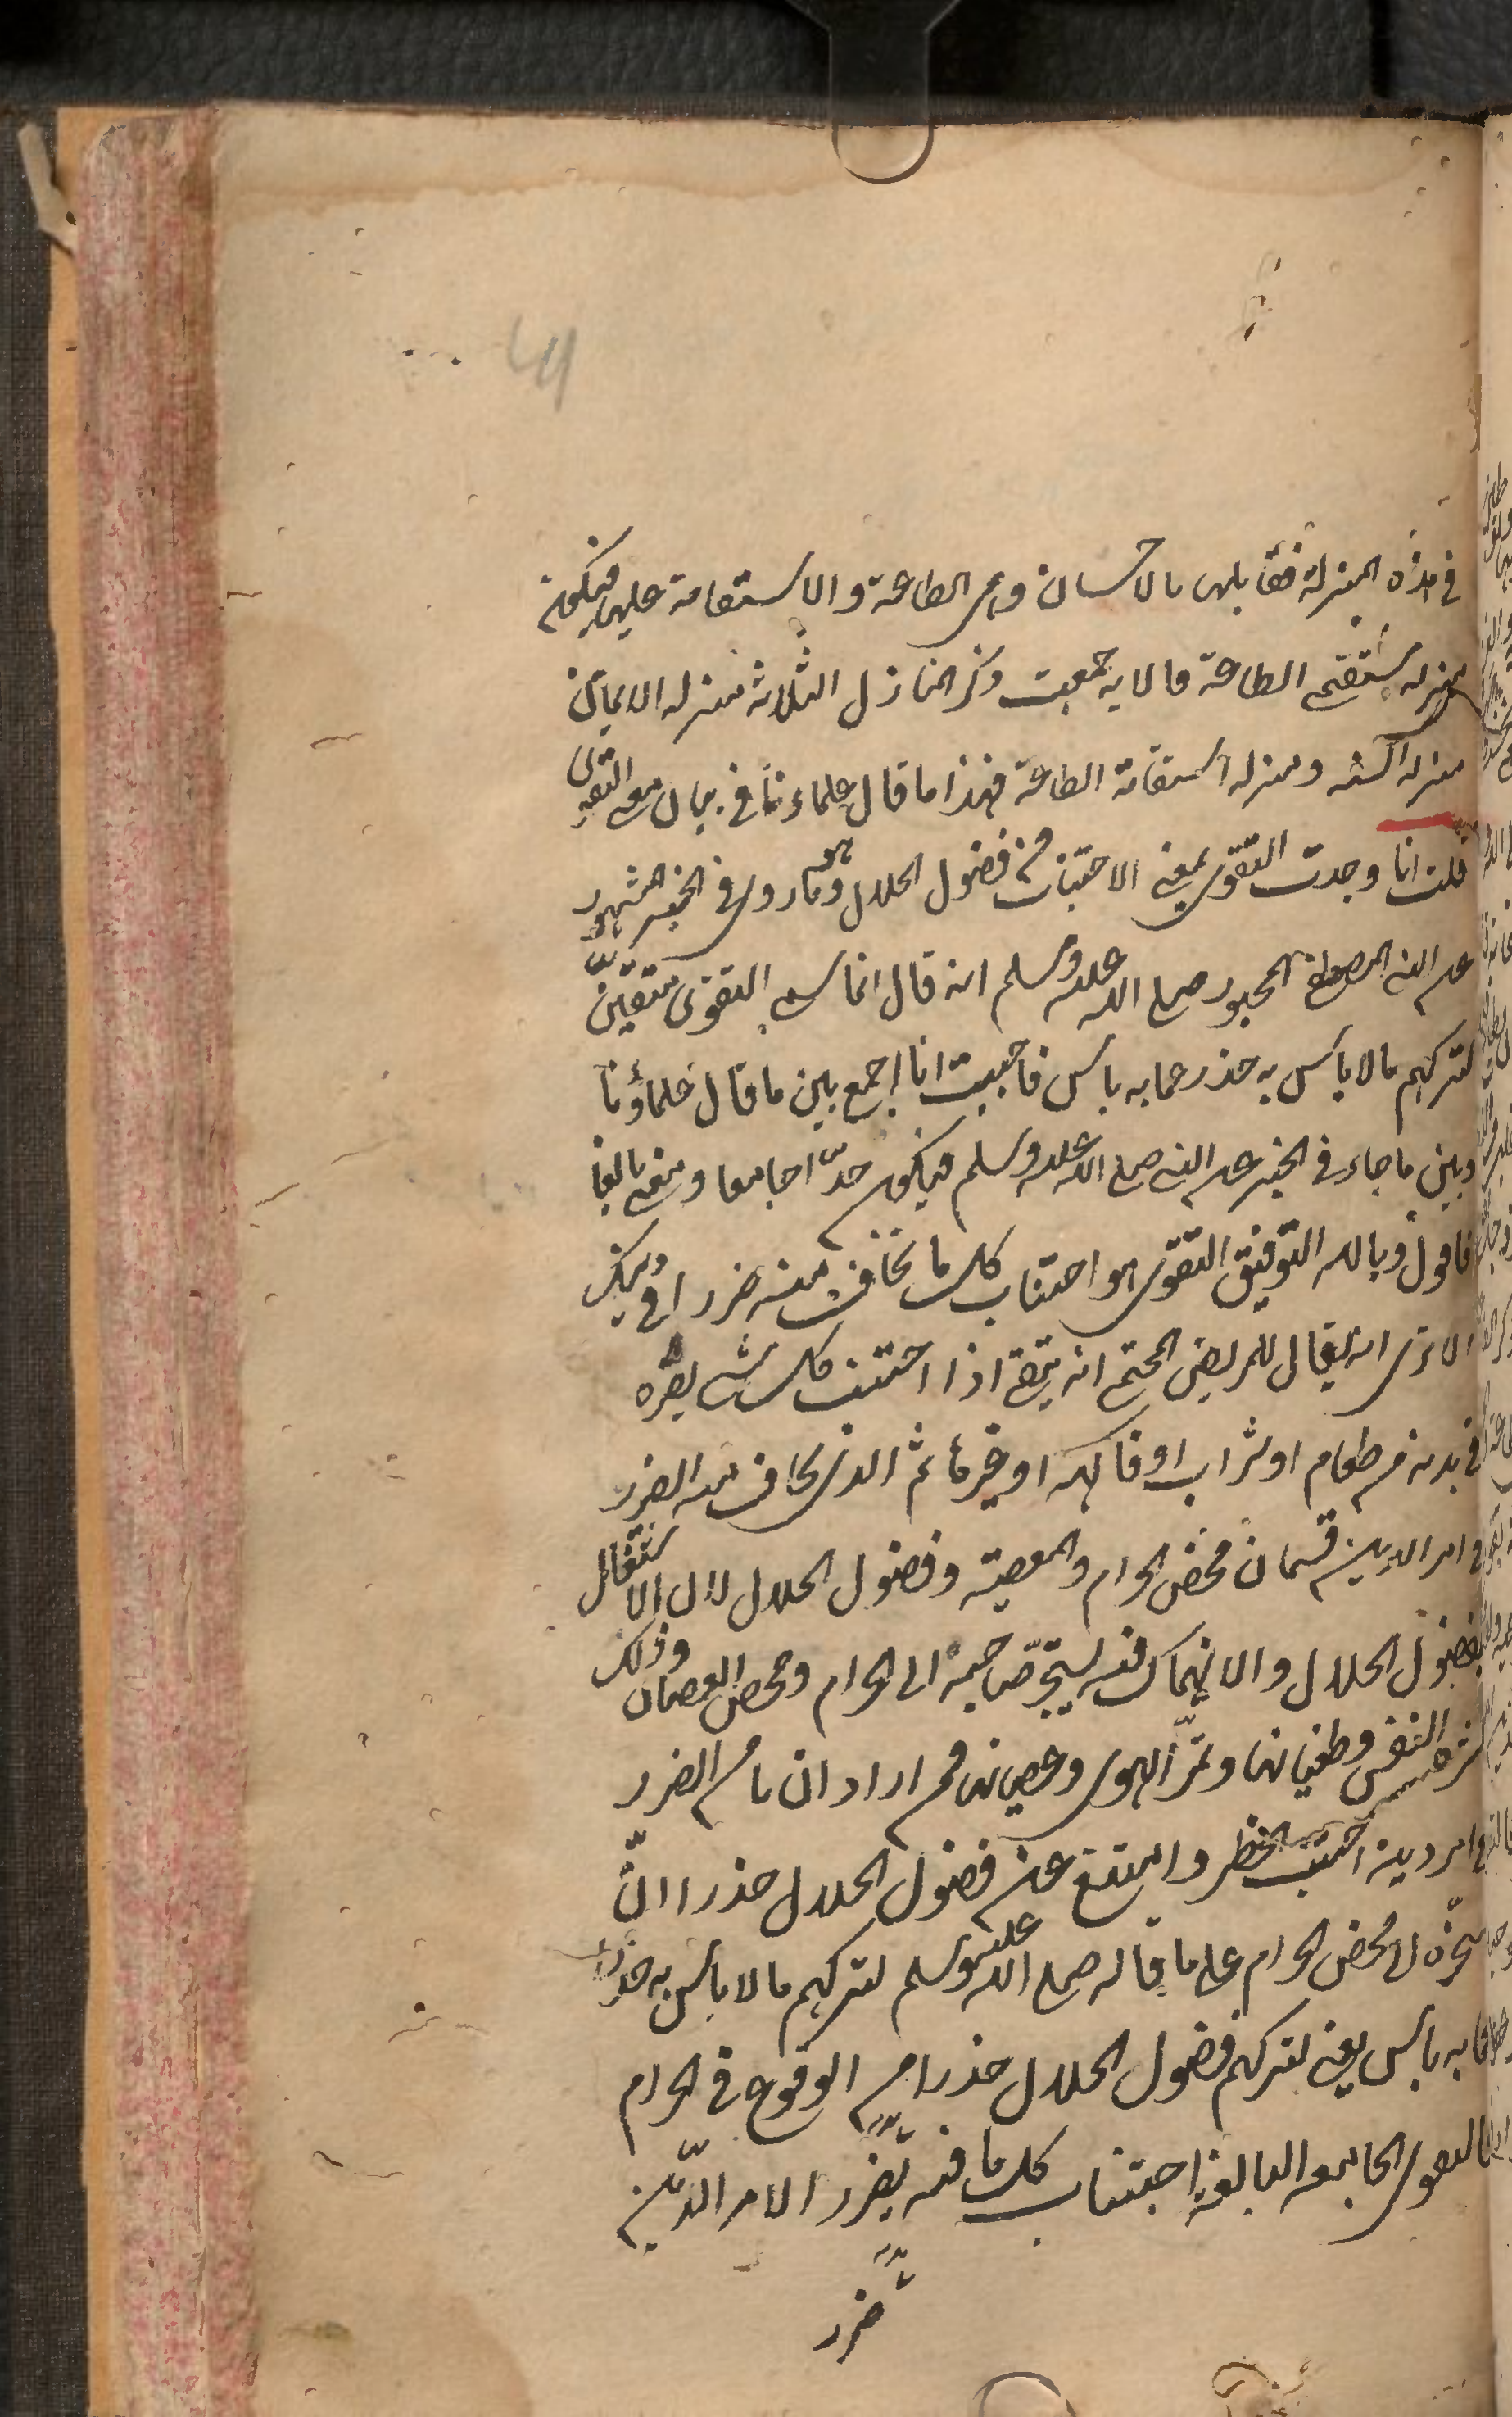 في هذه المنزلة فقابلها بالاحسان وهي الطاعة والاستقامة عليها فيكون
منزلة مستقيم الطاعة فالاية جمعت ذكر المنازل الثلاثة منزلة الايمان
منزلة السنة ومنزلة استقامة الطاعة فهذا ما قال علماءنا في بيان معنى التقوى
قلت انا وجدت التقوى بمعنى الاجتناب من فضول الحلال وهو ما روى في الخبر المشهور
عن النبي المصطفى صلى الله عليه وسلم انه قال انما سمى التقوى متقين
لتركهم ما لا بأس به حذر عما به بأس فاحببت انا اجمع بين ما قال علماؤنا
وبين ما جاء في الخبر عن النبي صلى الله عليه وسلم فيكون حدّا جامعا ومعنى بالغا
فاقول وبالله التوفيق التقوى هو اجتناب كل ما تخاف منه ضررا في دينك
الا ترى انه يقال للمريض المحتمى انه يتقى اذا اجتنب كل شئ يضره
في بدنه من طعام او شراب او فاكهة او غيرها ثم الذى يخاف منه الضرر
في امر الدين قسمان محض الحرام والمعصية وفضول الحلال لان الاشتغال
بفضول الحلال والانهماك فيه يستجرّ صاحبه الى الحرام ومحض العصيان وذلك
لشره النفس وطغيانها وتمرّد الهوى وعصيانه فمن اراد ان يأمن الضرر
في امر دينه اجتنب الخطر وامتنع عن فضول الحلال حذرا ان
يجرّه الى محض الحرام على ما قاله صلى الله عليه وسلم لتركهم ما لا بأس به حذرا
عما به بأس يعنى لتركهم فضول الحلال حذرا من الوقوع في الحرام
فالتقوى الجامعة البالغة اجتناب كل ما فيه ضرر الامر الدّين
ضرر